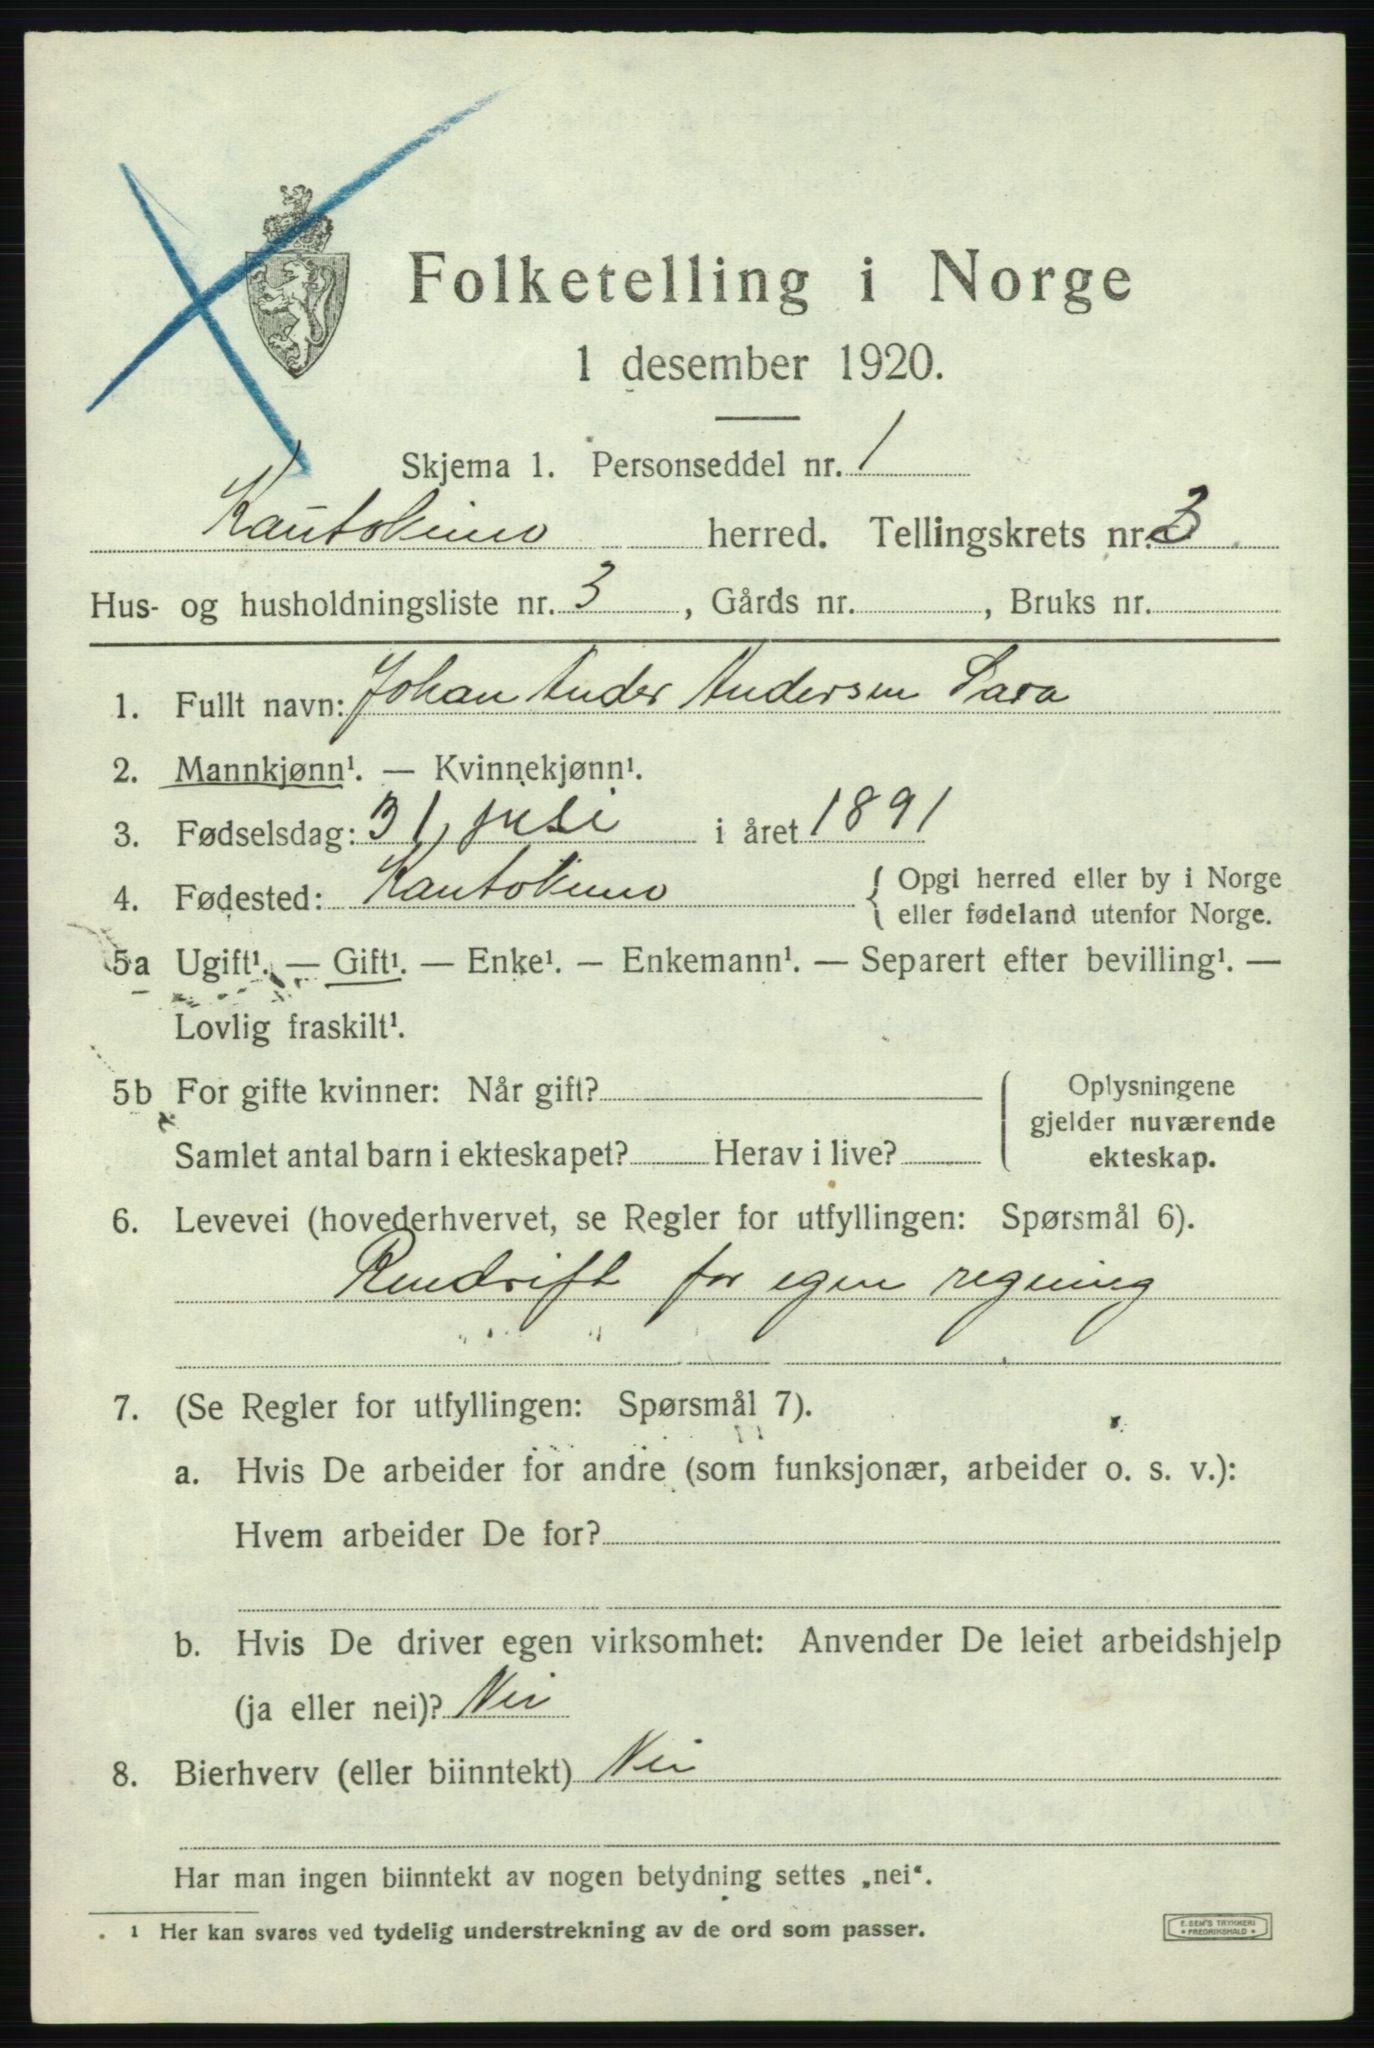 Folketelling i Norge
1 desember 1920.
Skjema 1. Personseddel nr. 1
Kautokeino herred. Tellingskrets nr. 3
Hus- og husholdningsliste nr. 3, Gårds nr. , Bruks nr.
1. Fullt navn: Johan Ander Andersen Sara
2. Mannkjønn¹. — Kvinnekjønn¹.
3. Fødselsdag: 31 juli i året 1891
4. Fødested: Kautokeino { Opgi herred eller by i Norge
eller fødeland utenfor Norge.
5a Ugift¹. — Gift¹. — Enke¹. — Enkemann¹. — Separert efter bevilling¹. —
Lovlig fraskilt¹.
5b For gifte kvinner: Når gift? { Oplysningene
gjelder nuværende
Samlet antal barn i ekteskapet? Herav i live? ekteskap.
6. Levevei (hovederhvervet, se Regler for utfyllingen: Spørsmål 6).
Rendrift for egen regning
7. (Se Regler for utfyllingen: Spørsmål 7).
a. Hvis De arbeider for andre (som funksjonær, arbeider o. s. v.):
Hvem arbeider De for?
b. Hvis De driver egen virksomhet: Anvender De leiet arbeidshjelp
(ja eller nei)? Nei
8. Bierhverv (eller biinntekt) Nei
Har man ingen biinntekt av nogen betydning settes „nei“.
¹ Her kan svares ved tydelig understrekning av de ord som passer.
E. SEM'S TRYKKERI
• FREDRIKSHALD •